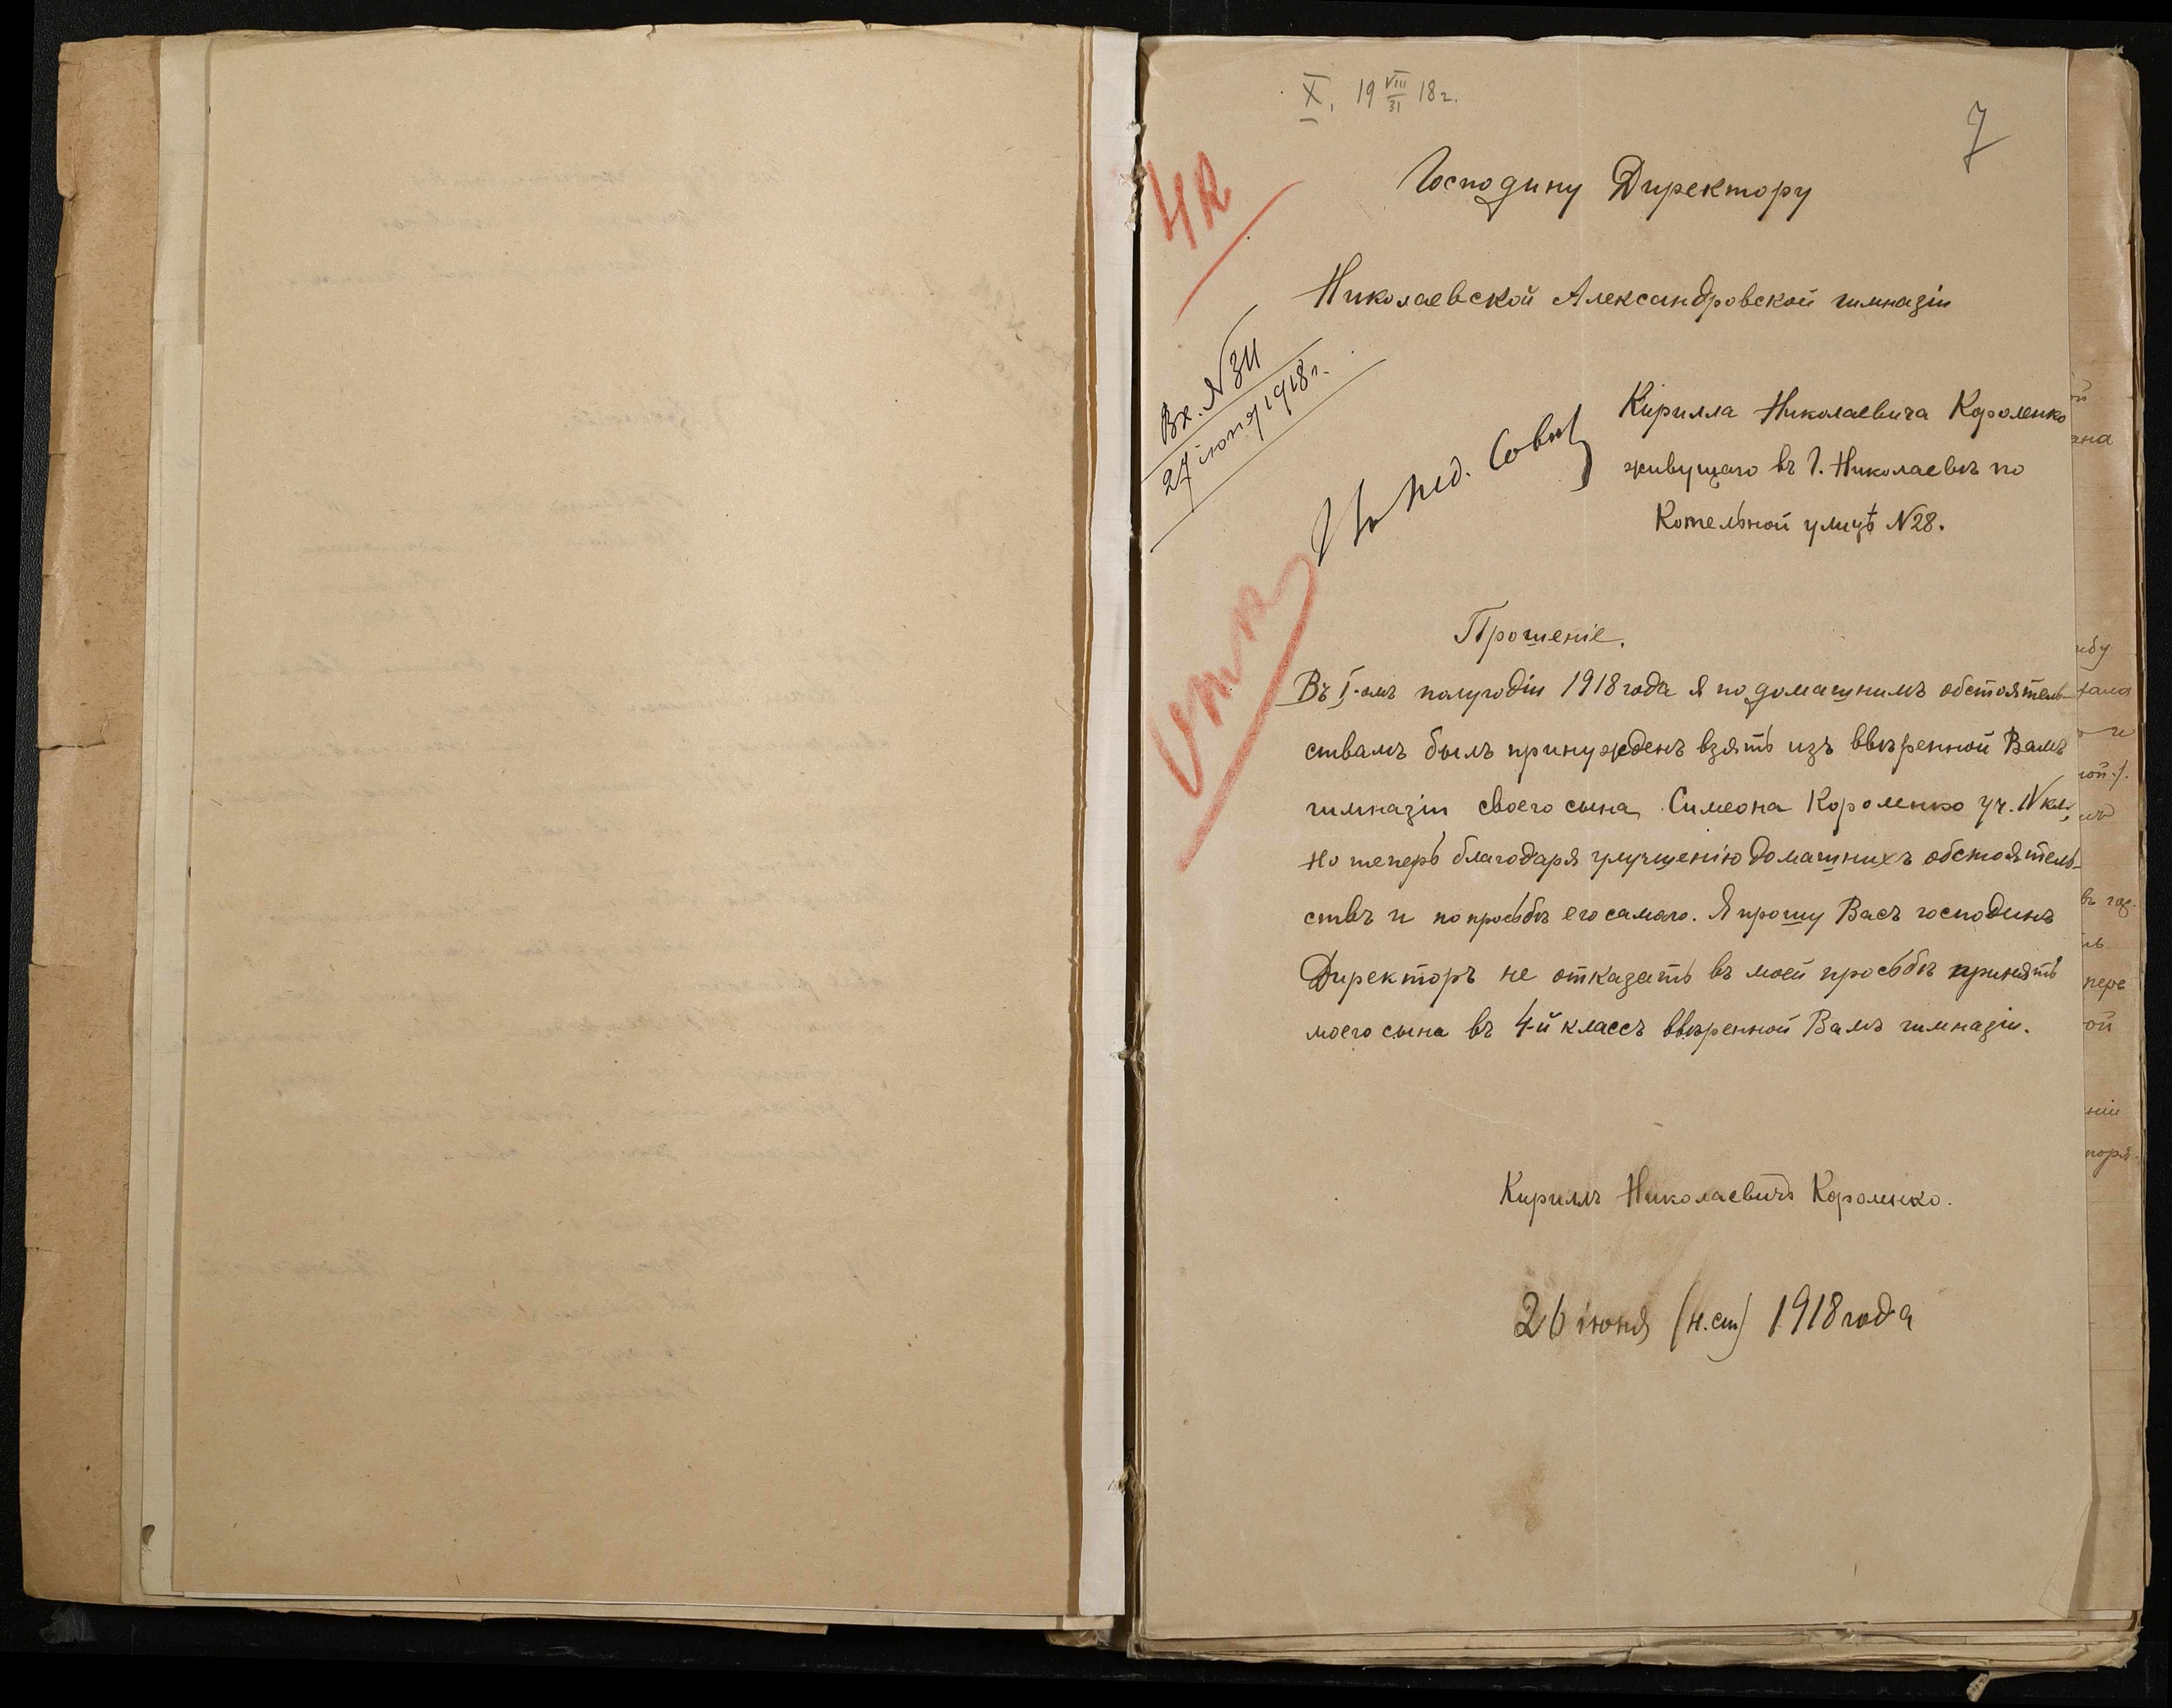 X, 19 VIII/31 18 г.
7
4 к
Господину Директору
Николаевской Александровской гимназіи
Вх. N 311
27 іюня 1918 г.
Кирилла Николаевича Короленко
живущаго въ Г. Николаевѣ по
Котельной улицѣ N 28.
Пед. Совѣт
Прошеніе.
Въ I-омъ полугодіи 1918 года я по домашнимъ обстоятель-
ствамъ былъ принужденъ взять изъ ввѣренной Вамъ
гимназіи своего сына Симеона Короленко уч. IV кл.,
но теперь благодаря улучшенію домашнихъ обстоятель-
ствъ и по просьбѣ его самого. Я прошу Васъ господинъ
Директоръ не отказать въ моей просьбѣ принять
моего сына въ 4-й классъ ввѣренной Вамъ гимназіи.
Кириллъ Николаевичъ Короленко.
26 іюня (н. ст) 1918 года